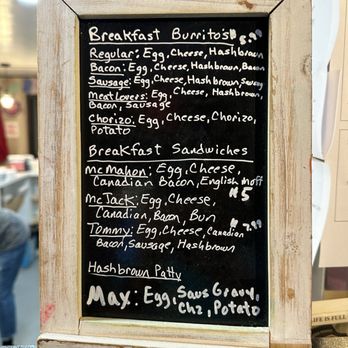 Breakfast Burrito's
Regular: Egg, Cheese, Hashbrown
Bacon: Egg, Cheese, Hashbrown, Bacon
Sausage: Egg, Cheese, Hashbrown, Sausage
Meat Lovers: Egg, Cheese, Hashbrown,
Bacon, Sausage
Chorizo: Egg, Cheese, Chorizo,
Potato
Breakfast Sandwiches
McMahon: Egg, Cheese,
Canadian Bacon, English Moff
$5
McJack: Egg, Cheese,
Canadian, Bacon, Bun
Tommy: Egg, Cheese, Canadian
Bacon, Sausage, Hashbrown
Hashbrown Patty
Max: Egg, Saus Gravy,
Chz, Potato
LIFE IS FULL